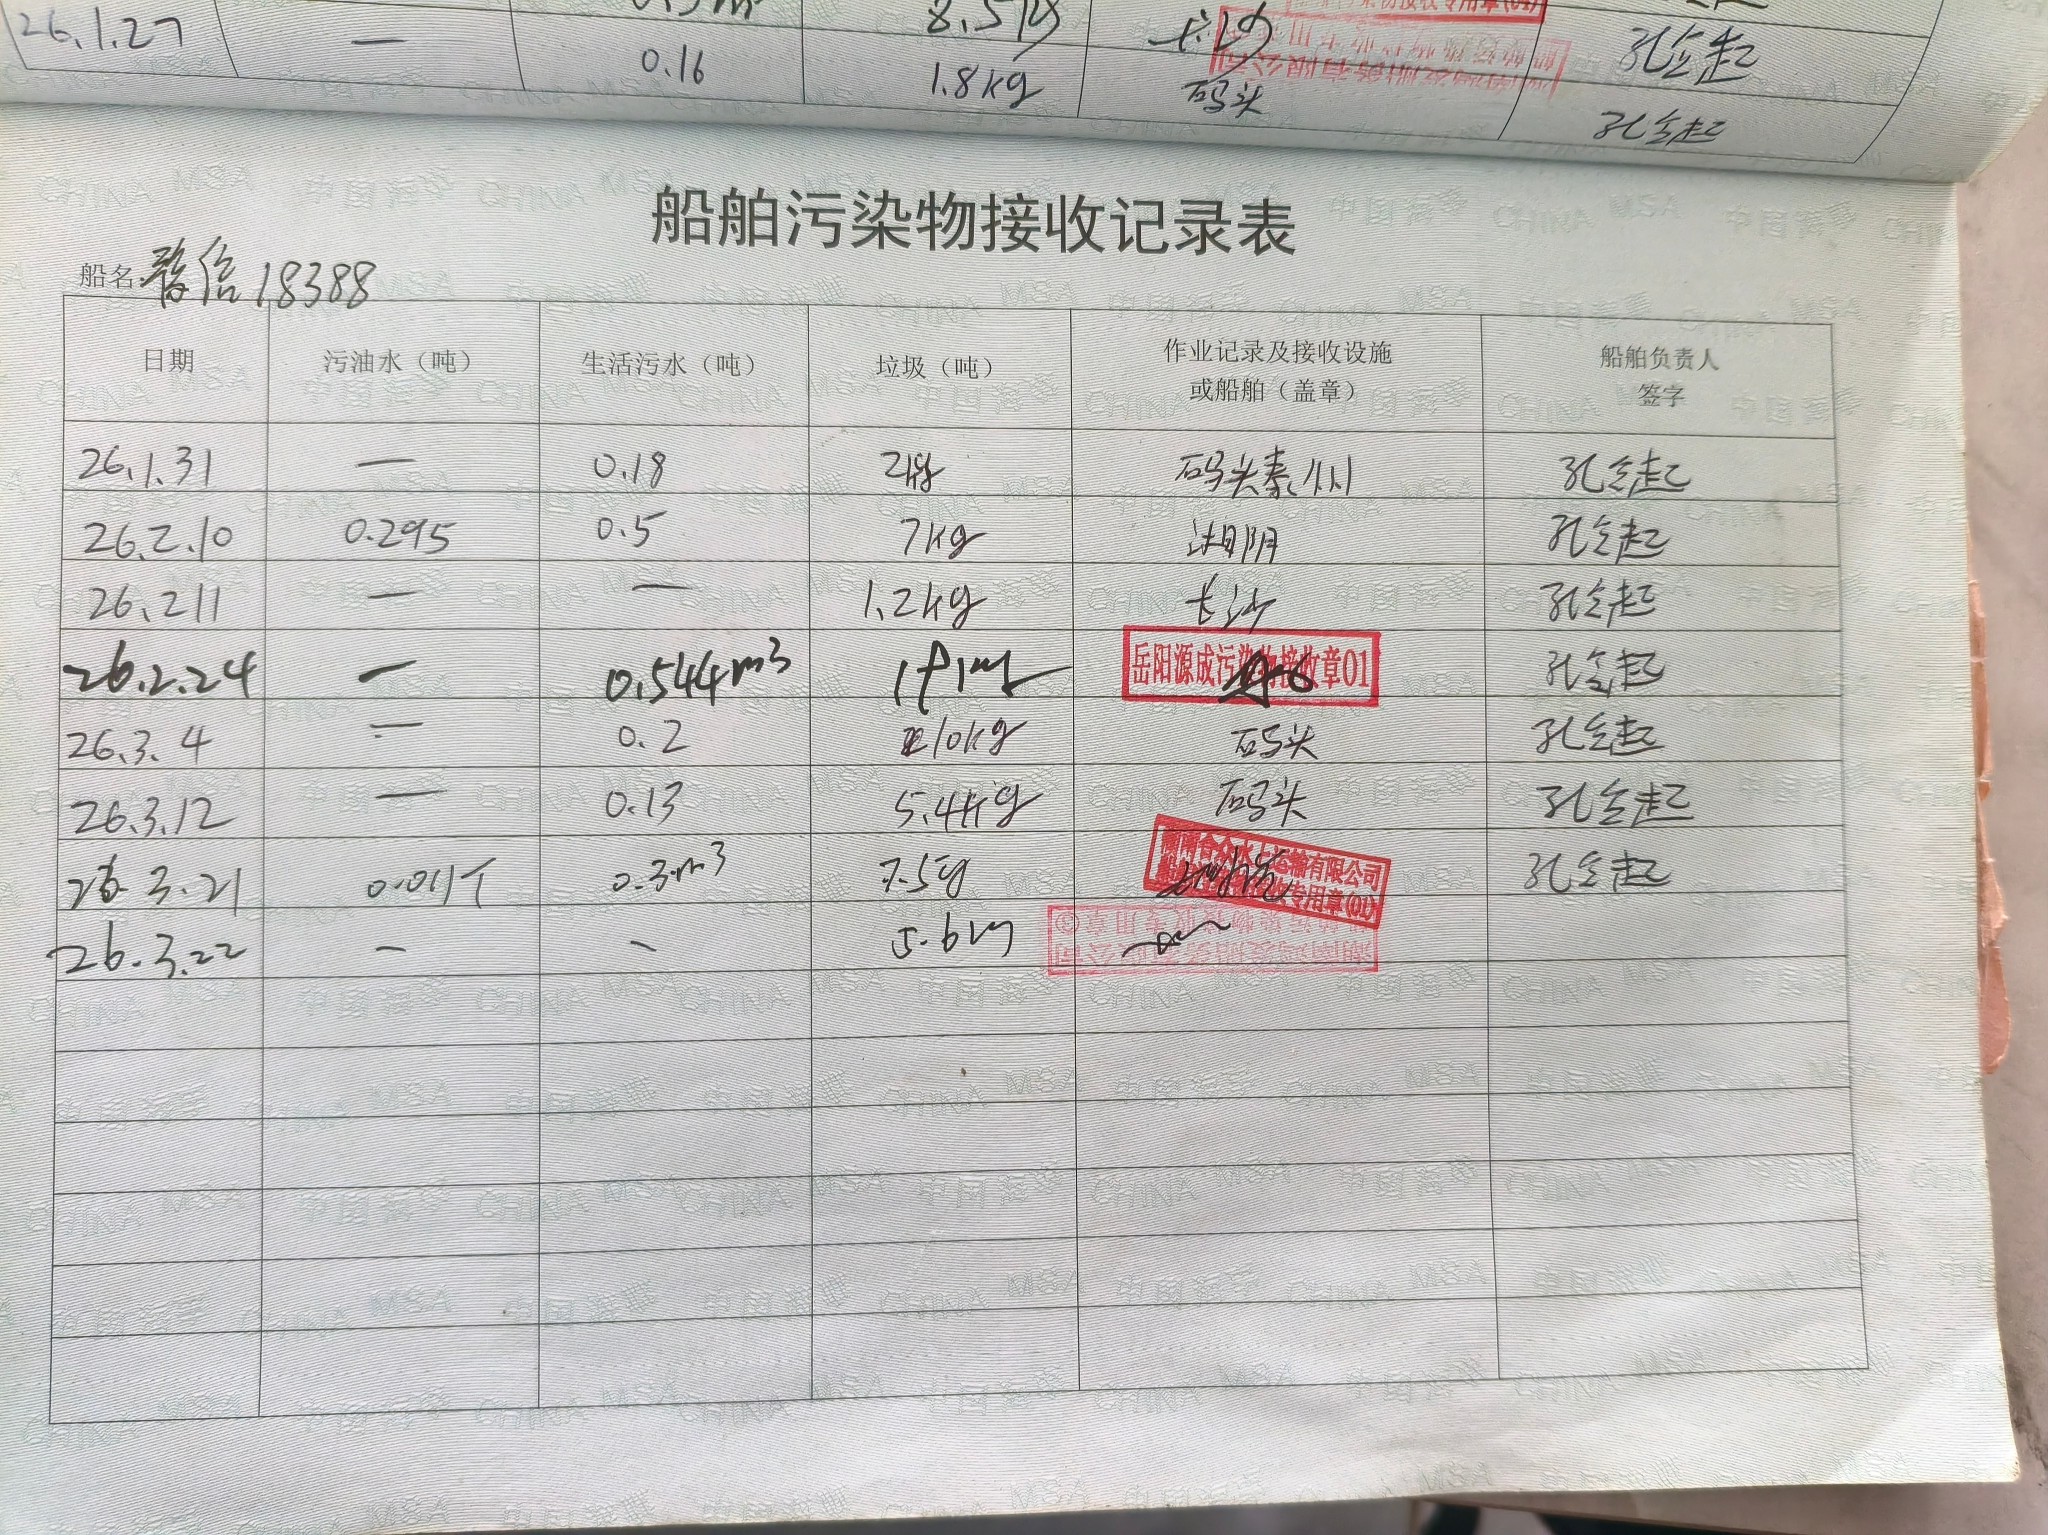 26.1.27 — 8.5kg 长沙 孔令起
0.16 1.8kg 码头 孔令起
船舶污染物接收记录表
船名 18388
日期 污油水（吨） 生活污水（吨） 垃圾（吨） 作业记录及接收设施或船舶（盖章） 船舶负责人签字
26.1.31 — 0.18 2kg 码头泰州 孔令起
26.2.10 0.295 0.5 7kg 湘阴 孔令起
26.2.11 — — 1.2kg 长沙 孔令起
26.2.24 — 0.544m3 岳阳源成污染物接收章01 孔令起
26.3.4 — 0.2 10kg 码头 孔令起
26.3.12 — 0.13 5.4kg 码头 孔令起
26.3.21 0.011 0.3m3 7.5kg 水上运输有限公司 专用章(01) 孔令起
26.3.22 — — 5.6kg